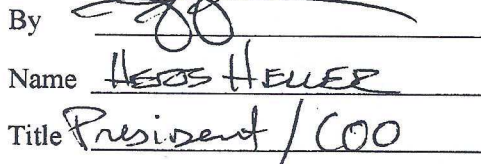 By
Name HELLER
Title President / COO